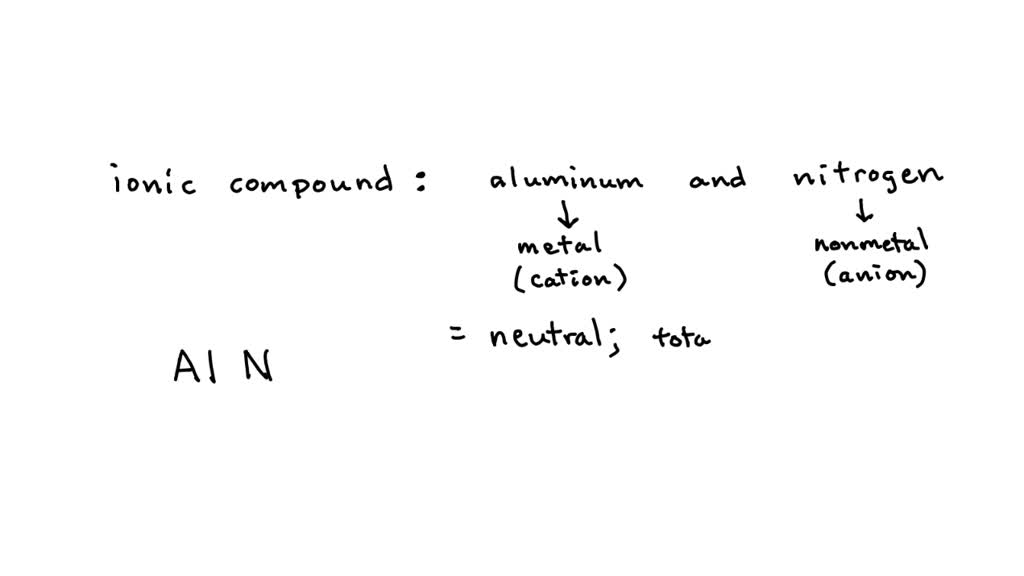 ionic compound : aluminum and nitrogen
↓ ↓
metal nonmetal
(cation) (anion)
= neutral; tota
Al N